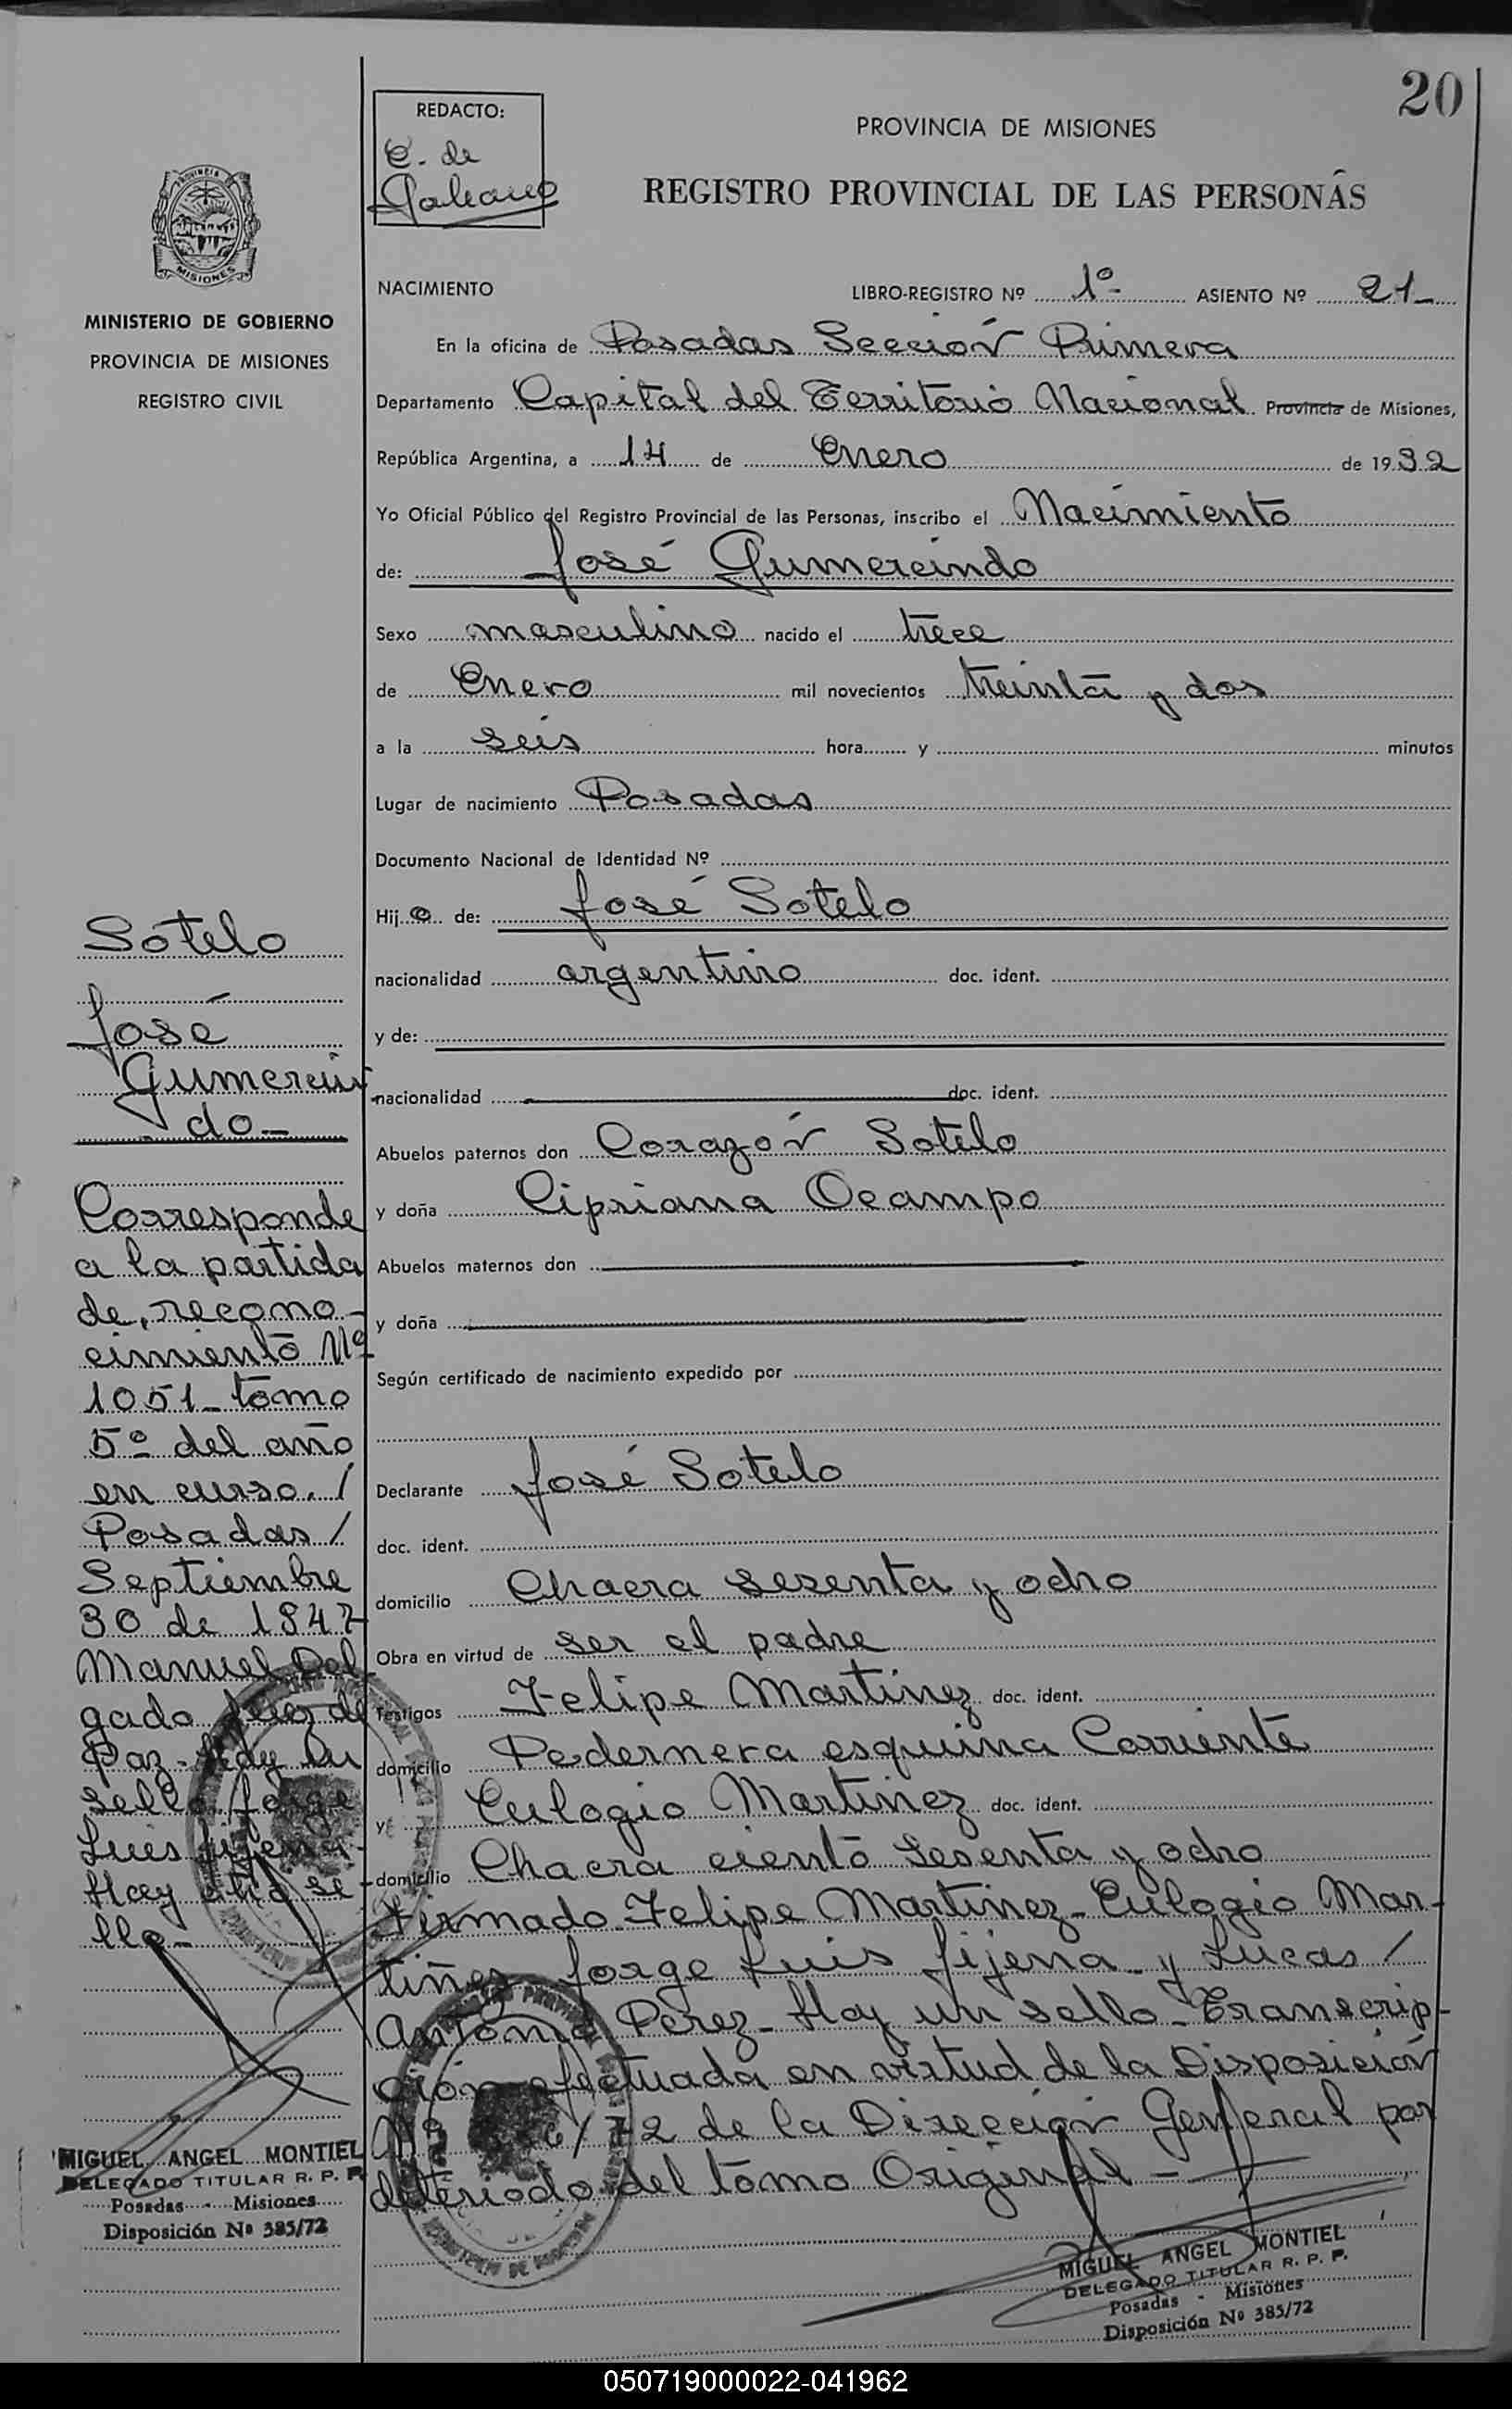 20
REDACTO:
C. de
Galeano
PROVINCIA DE MISIONES
REGISTRO PROVINCIAL DE LAS PERSONAS
PROVINCIA DE
MISIONES
MINISTERIO DE GOBIERNO
PROVINCIA DE MISIONES
REGISTRO CIVIL
NACIMIENTO LIBRO-REGISTRO Nº 1º- ASIENTO Nº 21-
En la oficina de Posadas Sección Primera
Departamento Capital del Territorio Nacional Provincia de Misiones,
República Argentina, a 14 de Enero de 1932
Yo Oficial Público del Registro Provincial de las Personas, inscribo el Nacimiento
de: José Gumercindo
Sexo masculino nacido el trece
de Enero mil novecientos treinta y dos
a la seis hora y minutos
Lugar de nacimiento Posadas
Documento Nacional de Identidad Nº
Hijo de: José Sotelo
nacionalidad argentino doc. ident.
y de:
nacionalidad doc. ident.
Abuelos paternos don Corazón Sotelo
y doña Cipriana Ocampo
Abuelos maternos don
y doña
Según certificado de nacimiento expedido por
Declarante José Sotelo
doc. ident.
domicilio Chacra sesenta y ocho
Obra en virtud de ser el padre
Testigos Felipe Martinez doc. ident.
domicilio Pedernera esquina Corriente
y Eulogio Martinez doc. ident.
domicilio Chacra ciento sesenta y ocho
Firmado Felipe Martinez - Eulogio Mar-
tiñez Jorge Luis Jijena y Lucas /
Antonio Perez - Hay un sello - Transcrip-
ción efectuada en virtud de la Disposición
Nº /72 de la Dirección General por
deteriodo del tomo Original -
MIGUEL ANGEL MONTIEL
DELEGADO TITULAR R. P. P.
Posadas - Misiones
Disposición Nº 385/72
Sotelo
José
Gumercin
do -
Corresponde
a la partida
de recono-
cimiento Nº
1051 - tomo
5º del año
en curso. /
Posadas /
Septiembre
30 de 1947
Manuel Del
gado Juez de
Paz - Hay un
sello Jorge
Luis Jijena
Hay otro se
llo -
MIGUEL ANGEL MONTIEL
DELEGADO TITULAR R. P. P.
Posadas - Misiones
Disposición Nº 385/72
050719000022-041962